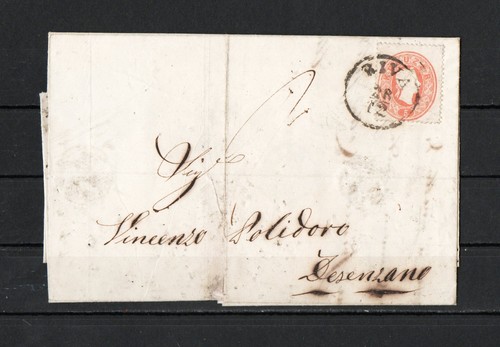 RIVA
28
12
Sigr
Vincenzo Polidoro
Desenzano